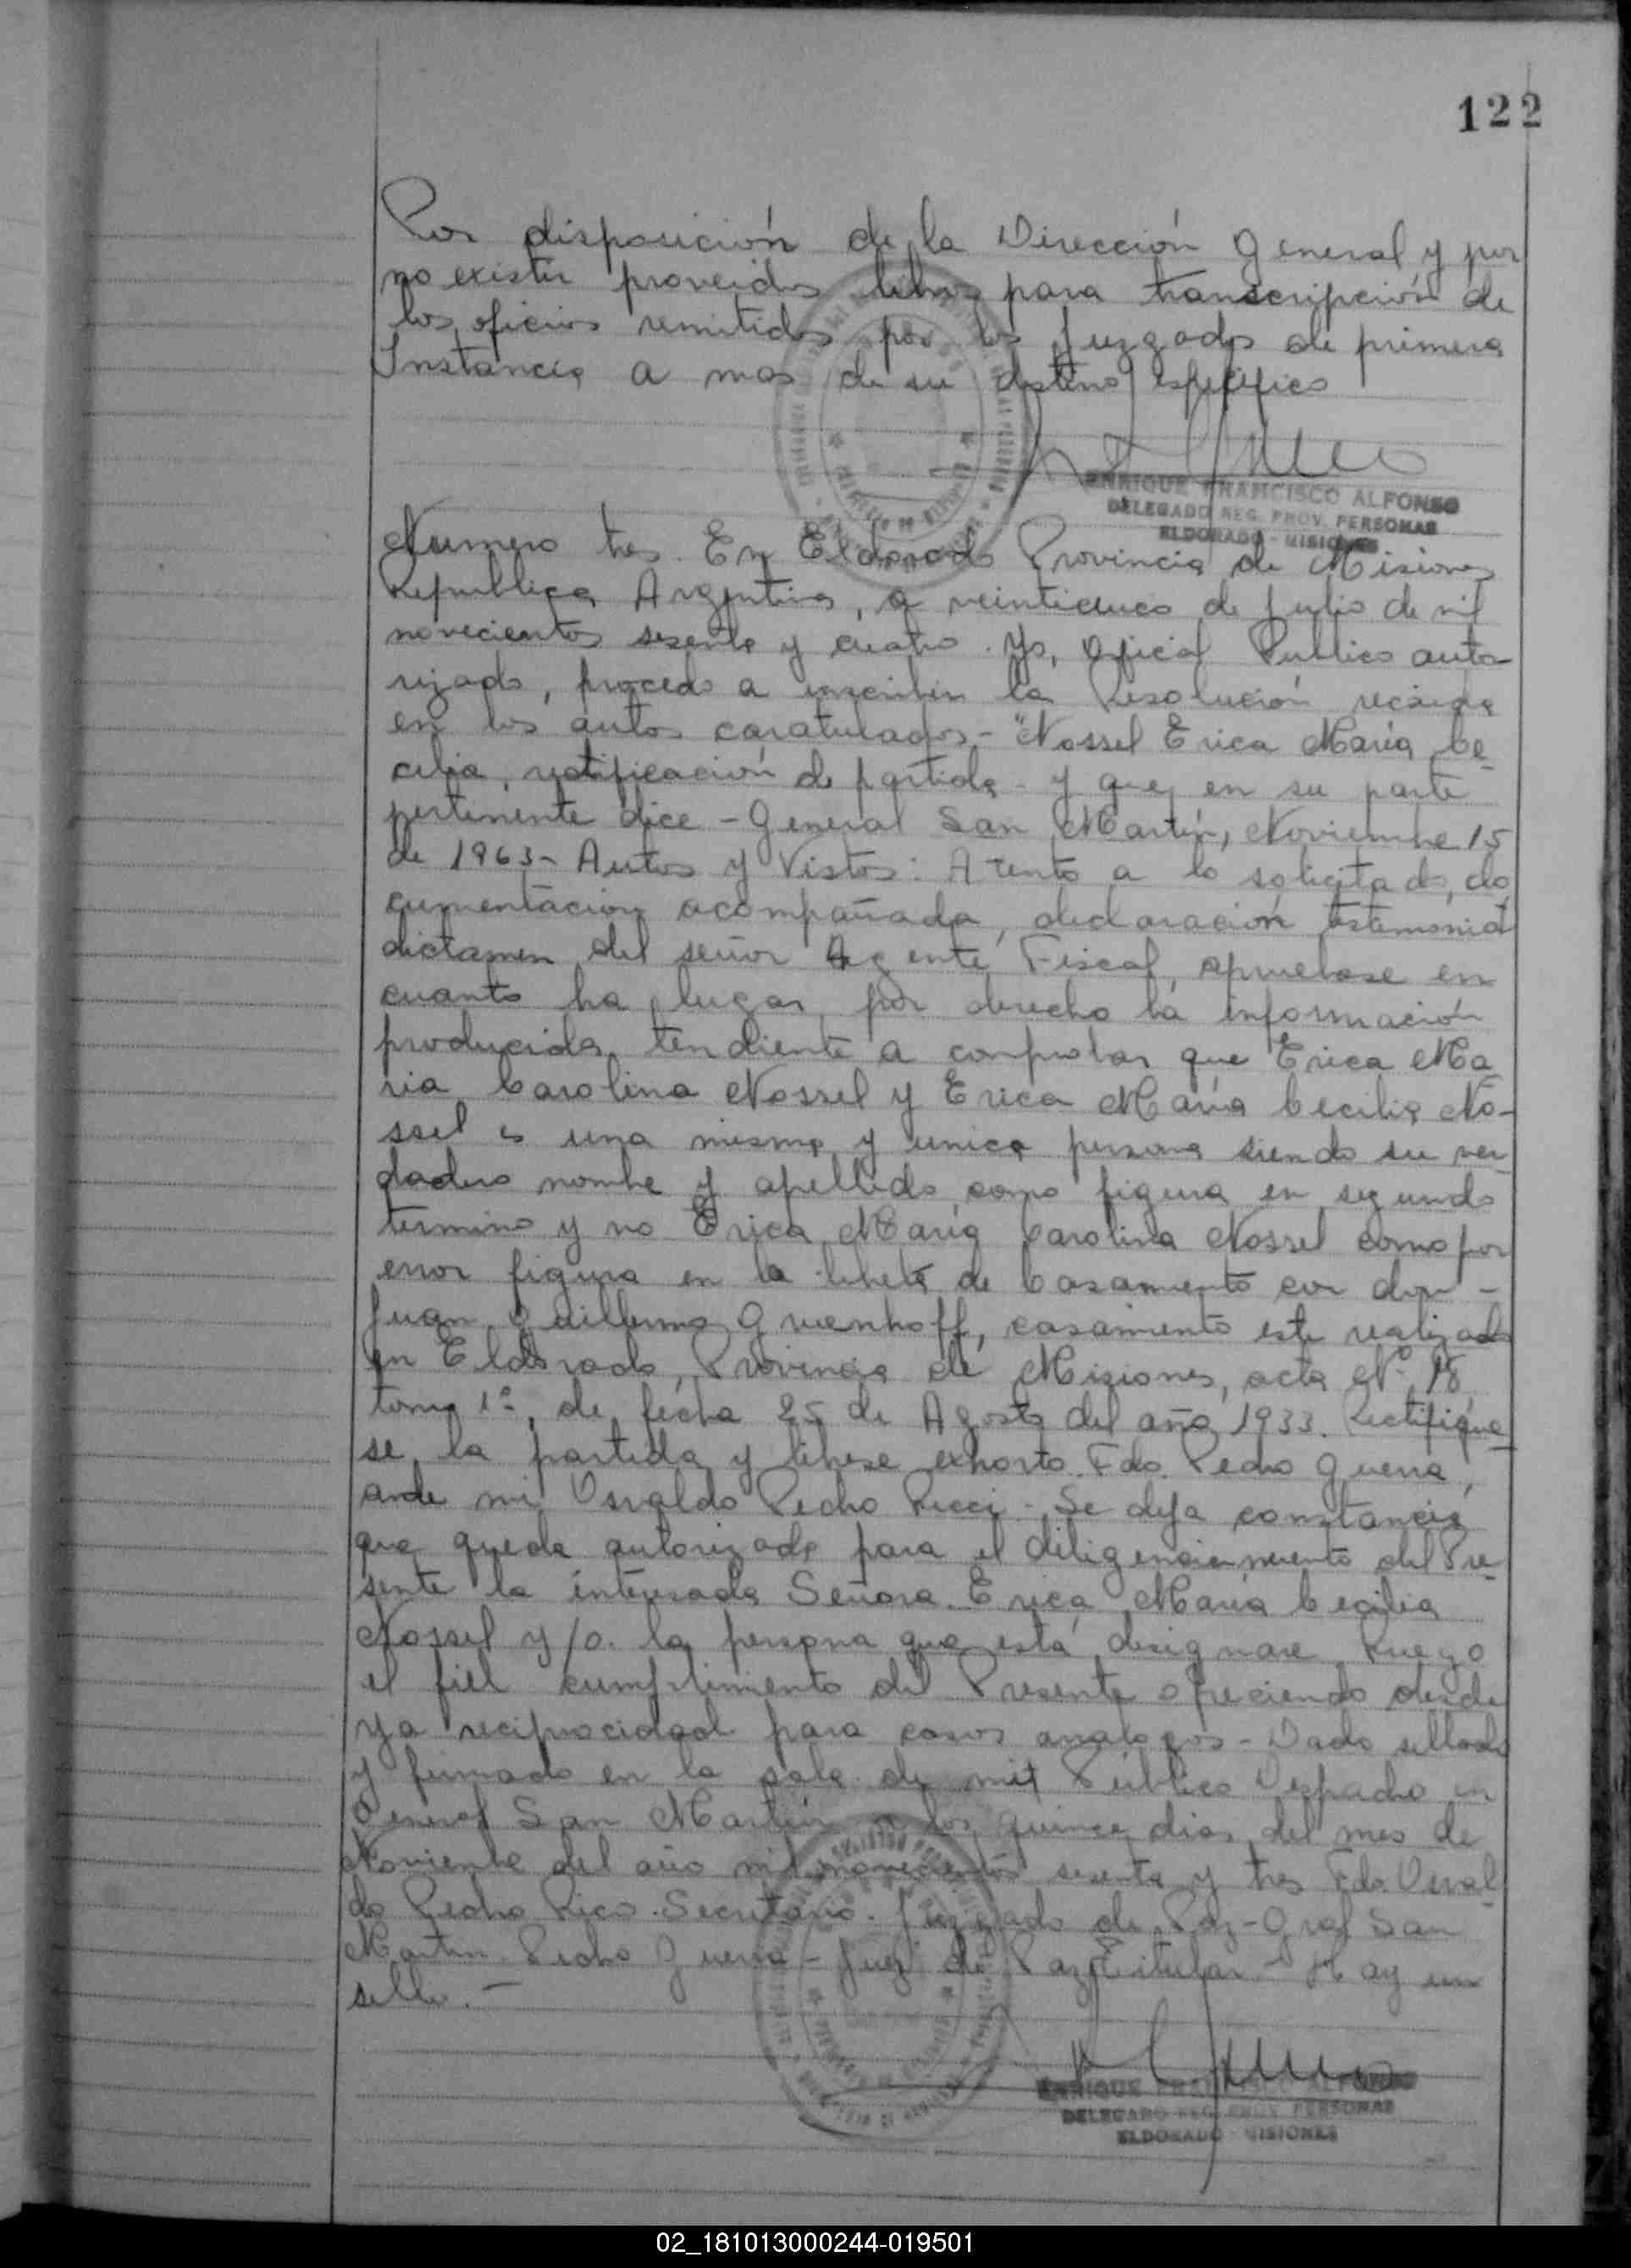 122
Por disposición de la Dirección General y por
no existir proveidos libros para transcripción de
los oficios remitidos por los Juzgados de primera
Instancia a mas de su destino especifico
ENRIQUE FRANCISCO ALFONSO
DELEGADO REG. PROV. PERSONAS
ELDORADO - MISIONES
Numero tres. En Eldorado Provincia de Misiones
Republica Argentina, a veinticinco de Julio de mil
novecientos sesenta y cuatro. Yo, Oficial Publico auto
rizado, procedo a inscribir la Resolución recaida
en los autos caratulados - "Nossel Erica María Ce-
cilia, rectificación de partida - y que en su parte
pertinente dice - General San Martín, Noviembre 15
de 1963 - Autos y Vistos: Atento a lo solicitado, do
cumentación acompañada, declaración testimonial
dictamen del señor Agente Fiscal apruebase en
cuanto ha lugar por derecho la información
producida tendiente a comprobar que Erica Ma-
ria Carolina Nossel y Erica María Cecilia No-
ssel es una misma y unica persona siendo su ver
dadero nombre y apellido como figura en segundo
termino y no Erica María Carolina Nossel como por
error figura en la libreta de Casamiento con don -
Juan Guillermo Gruenhoff, casamiento este realizado
en Eldorado, Provincia de Misiones, acta Nº 18
tomo 1º, de fecha 25 de Agosto del año 1933. Rectifique-
se la partida y librese exhorto. Fdo. Pedro Guerra,
ante mi Osvaldo Pedro Ricci - Se deja constancia
que queda autorizada para el diligenciamiento del Pre-
sente la interesada Señora Erica María Cecilia
Nossel y/o. la persona que esta designare Ruego
el fiel cumplimiento del Presente ofreciendo desde
ya reciprocidad para casos analogos - Dado sellado
y firmado en la sala de mi Público Despacho en
General San Martín a los quince dias del mes de
Noviembre del año mil novecientos sesenta y tres Fdo. Osval-
do Pedro Ricci. Secretario. Juzgado de Paz - Gral San
Martin. Pedro Guerra - Juez de Paz Titular - Hay un
sello. -
ENRIQUE FRANCISCO ALFONSO
DELEGADO REG. PROV. PERSONAS
ELDORADO - MISIONES
02_181013000244-019501